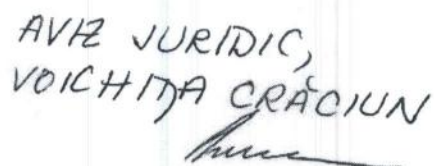 AVIZ JURIDIC,
VOICHIȚA CRĂCIUN